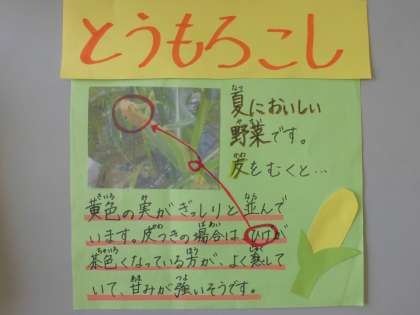 とうもろこし
夏においしい
野菜です。
皮をむくと…
黄色の実がぎっしりと並んで
います。皮つきの場合は ひげが
茶色くなっている方が、よく熟して
いて、甘みが強いそうです。